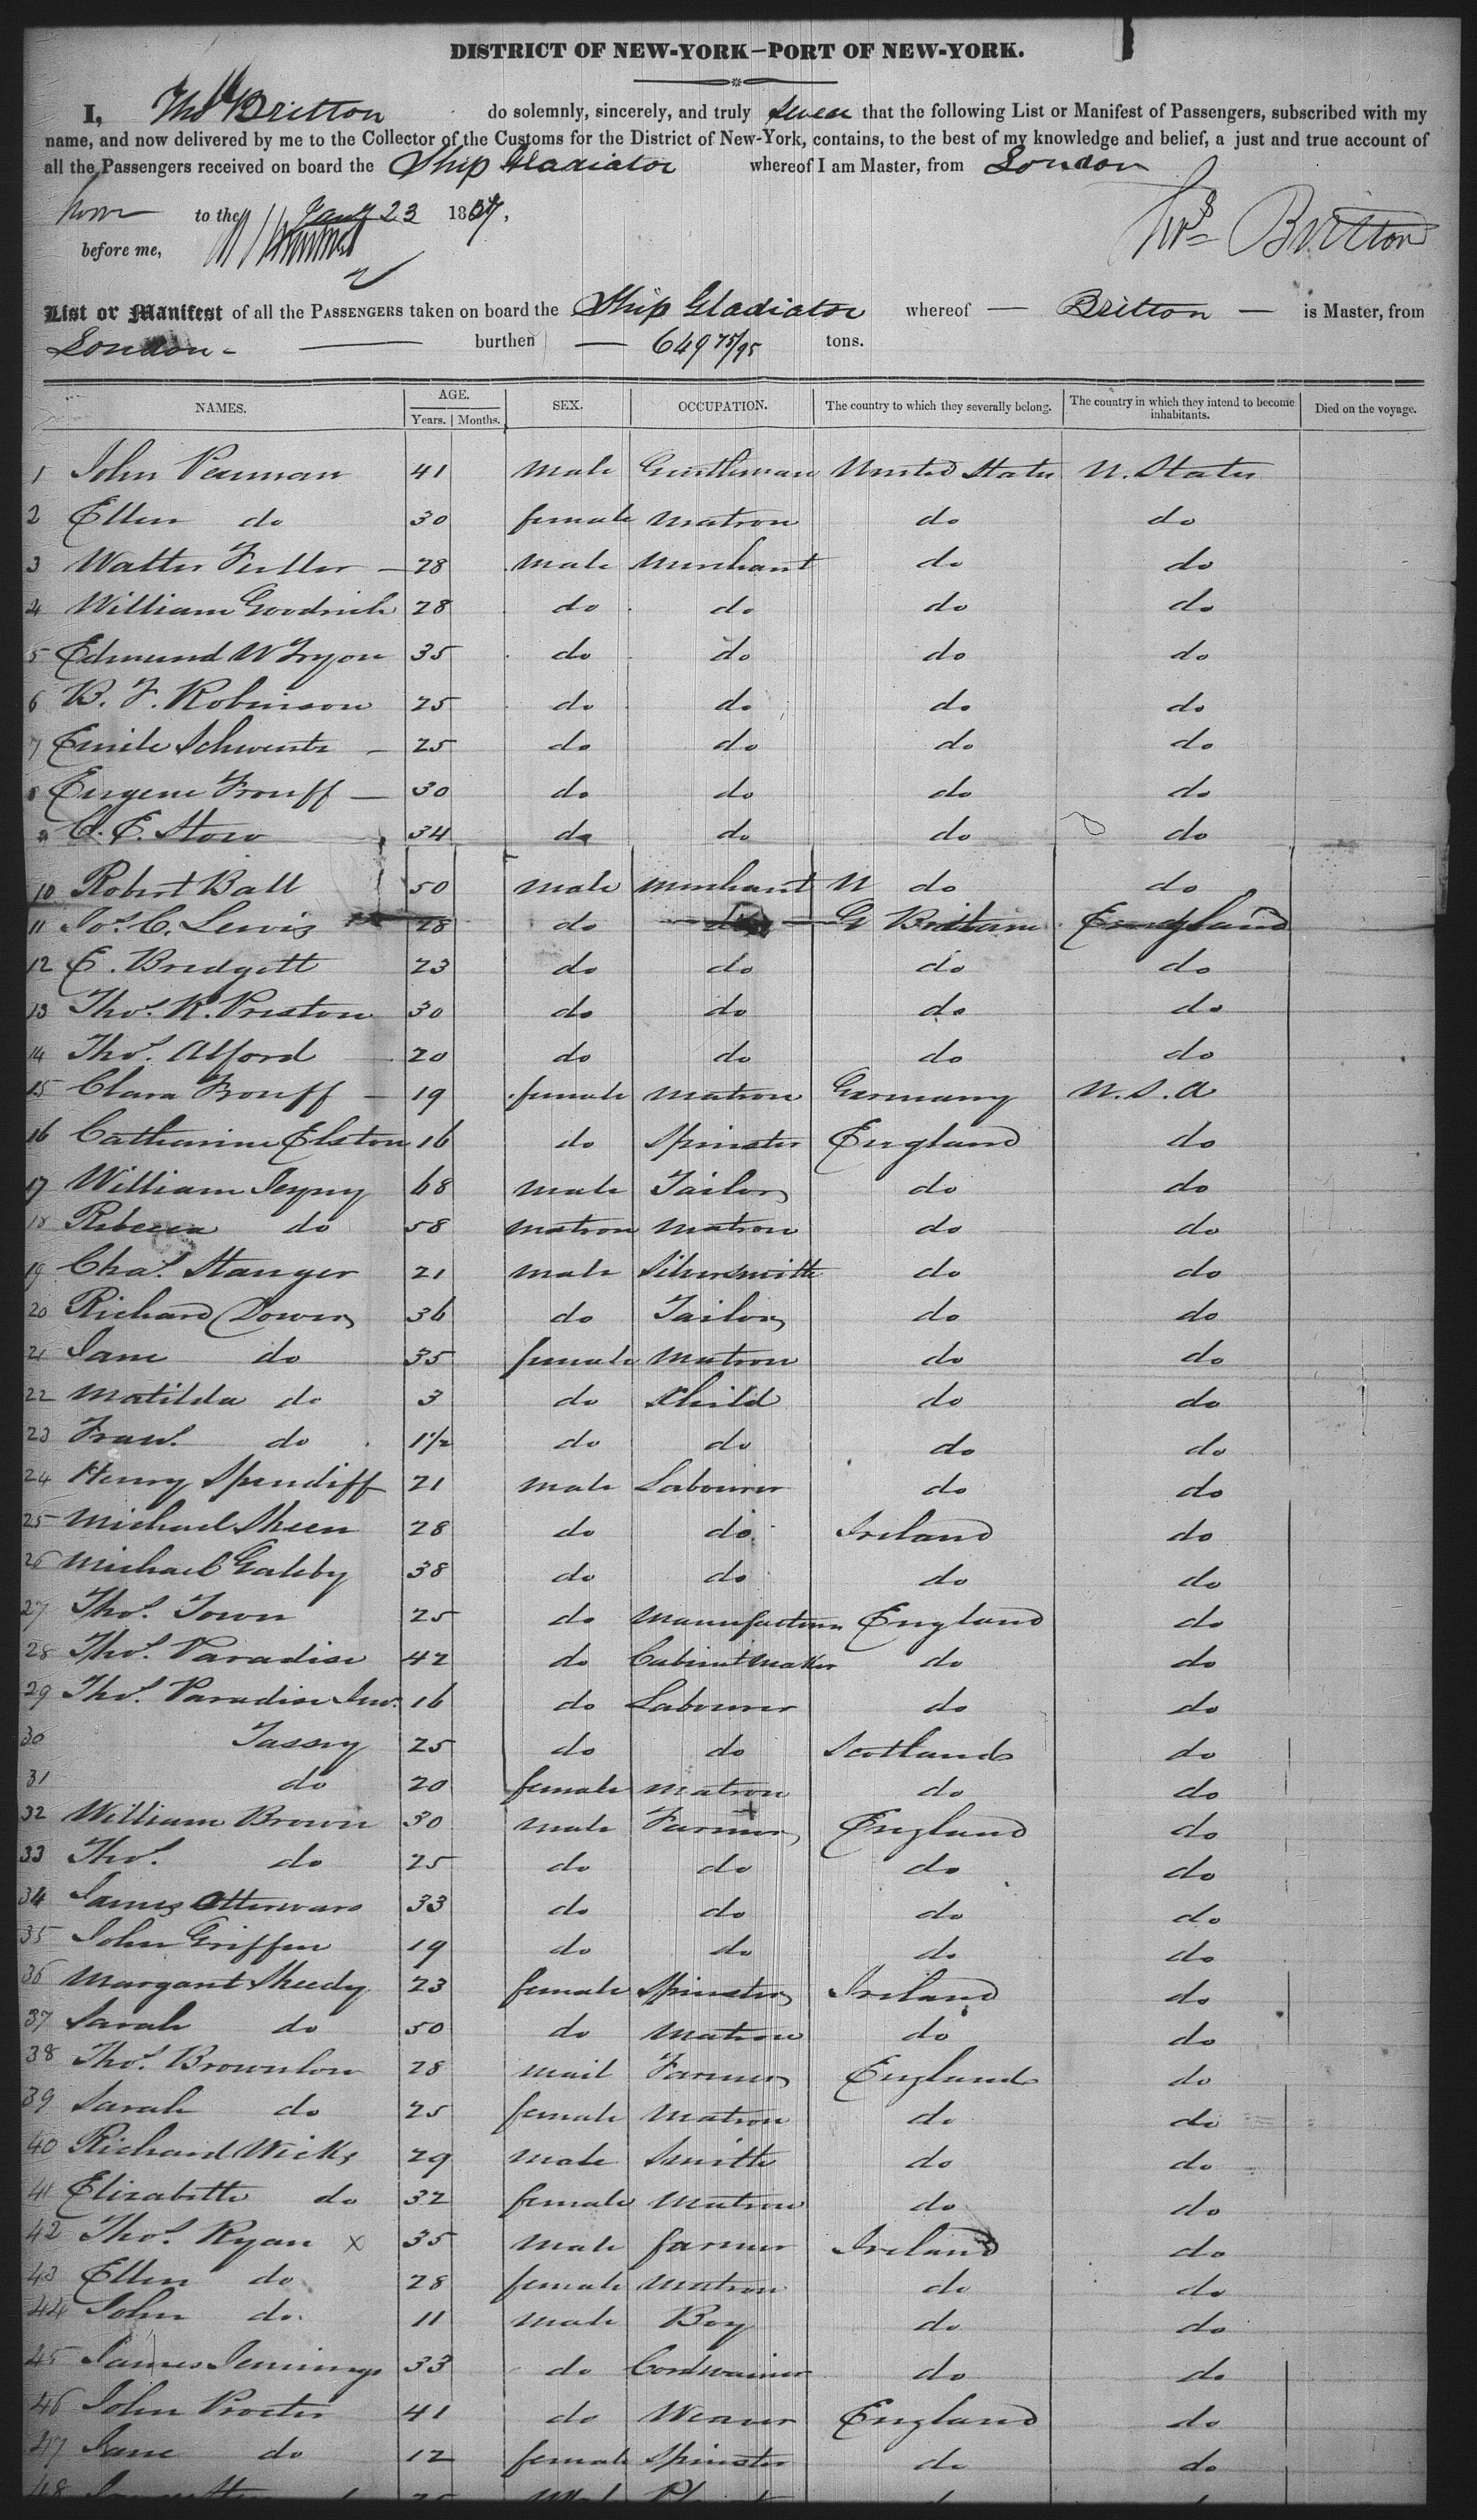 DISTRICT OF NEW-YORK—PORT OF NEW-YORK.
I, Thos Britton do solemnly, sincerely, and truly swear that the following List or Manifest of Passengers, subscribed with my
name, and now delivered by me to the Collector of the Customs for the District of New-York, contains, to the best of my knowledge and belief, a just and true account of
all the Passengers received on board the Ship Gladiator whereof I am Master, from London
to the Jany 23 18
before me,
Thos Britton
List or Manifest of all the PASSENGERS taken on board the Ship Gladiator whereof — Britton — is Master, from
London - — burthen — 649 75/95 tons.
NAMES. AGE. SEX. OCCUPATION. The country to which they severally belong. The country in which they intend to become inhabitants. Died on the voyage.
Years. Months.
1 John Penman 41 Male Gentleman United States U. States
2 Ellen do 30 female Matron do do
3 Walter Fuller — 28 Male Merchant do do
4 William Goodrich 28 do do do do
5 Edmund W Tryon 35 do do do do
6 B. F. Robinson 25 do do do do
7 Emile Schwentz - 25 do do do do
8 Eugene Fronff — 30 do do do do
9 C. E. Stow 34 do do do do
10 Robert Ball 50 Male Merchant U do do
11 Jos. C. Lewis 28 do do G Britain England
12 E. Bridgett 23 do do do do
13 Thos. R. Preston 30 do do do do
14 Thos. Alford 20 do do do do
15 Clara Fronff — 19 female Matron Germany U.S.A
16 Catharine Elston 16 do Spinster England do
17 William 68 Male Tailor do do
18 Rebecca do 58 Matron Matron do do
19 Chas. Stanger 21 Male Silversmith do do
20 Richard Dower 36 do Tailor do do
21 Jane do 35 female Matron do do
22 Matilda do 3 do Child do do
23 do 1½ do do do do
24 Henry Spendiff 21 Male Labourer do do
25 Michael Sheen 28 do do Ireland do
26 Michael Galeby 38 do do do do
27 Thos. Town 25 do Manufacturer England do
28 Thos. Paradise 42 do Cabinet Maker do do
29 Thos. Paradise Jun. 16 do Labourer do do
30 Tassey 25 do do Scotland do
31 do 20 female Matron do do
32 William Brown 30 Male Farmer England do
33 Thos. do 25 do do do do
34 James Otterward 33 do do do do
35 John Griffin 19 do do do do
36 Margaret Sheedy 23 female Spinster Ireland do
37 Sarah do 50 do Matron do do
38 Thos. Brownlow 28 Mail Farmer England do
39 Sarah do 25 female Matron do do
40 Richard Wicks 29 Male Smith do do
41 Elizabeth do 32 female Matron do do
42 Thos. Ryan x 35 Male farmer Ireland do
43 Ellen do 28 female Matron do do
44 John do. 11 Male Boy do do
45 James Jennings 33 do Cordwainer do do
46 John Procter 41 do Weaver England do
47 Jane do 12 female Spinster do do
48